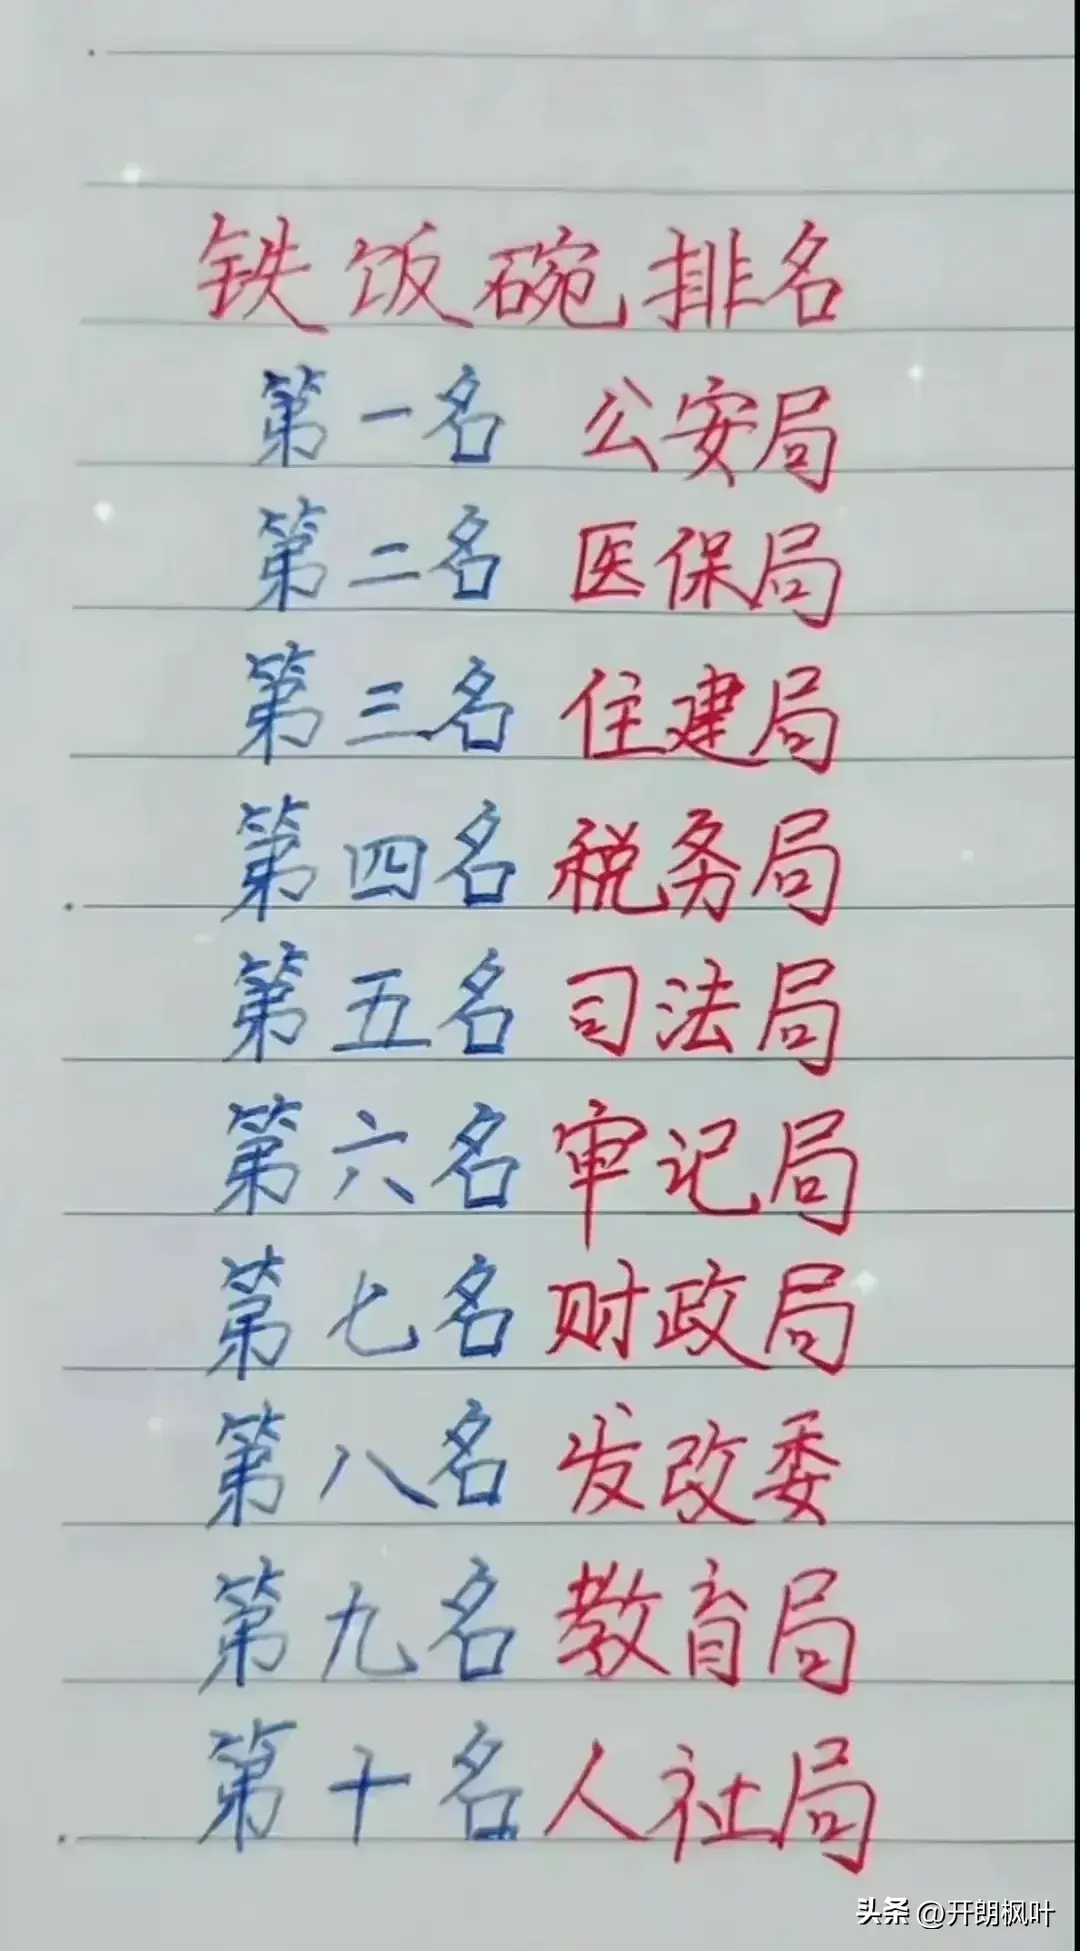 铁饭碗排名
第一名 公安局
第二名 医保局
第三名 住建局
第四名 税务局
第五名 司法局
第六名 审记局
第七名 财政局
第八名 发改委
第九名 教育局
第十名 人社局
头条 @开朗枫叶